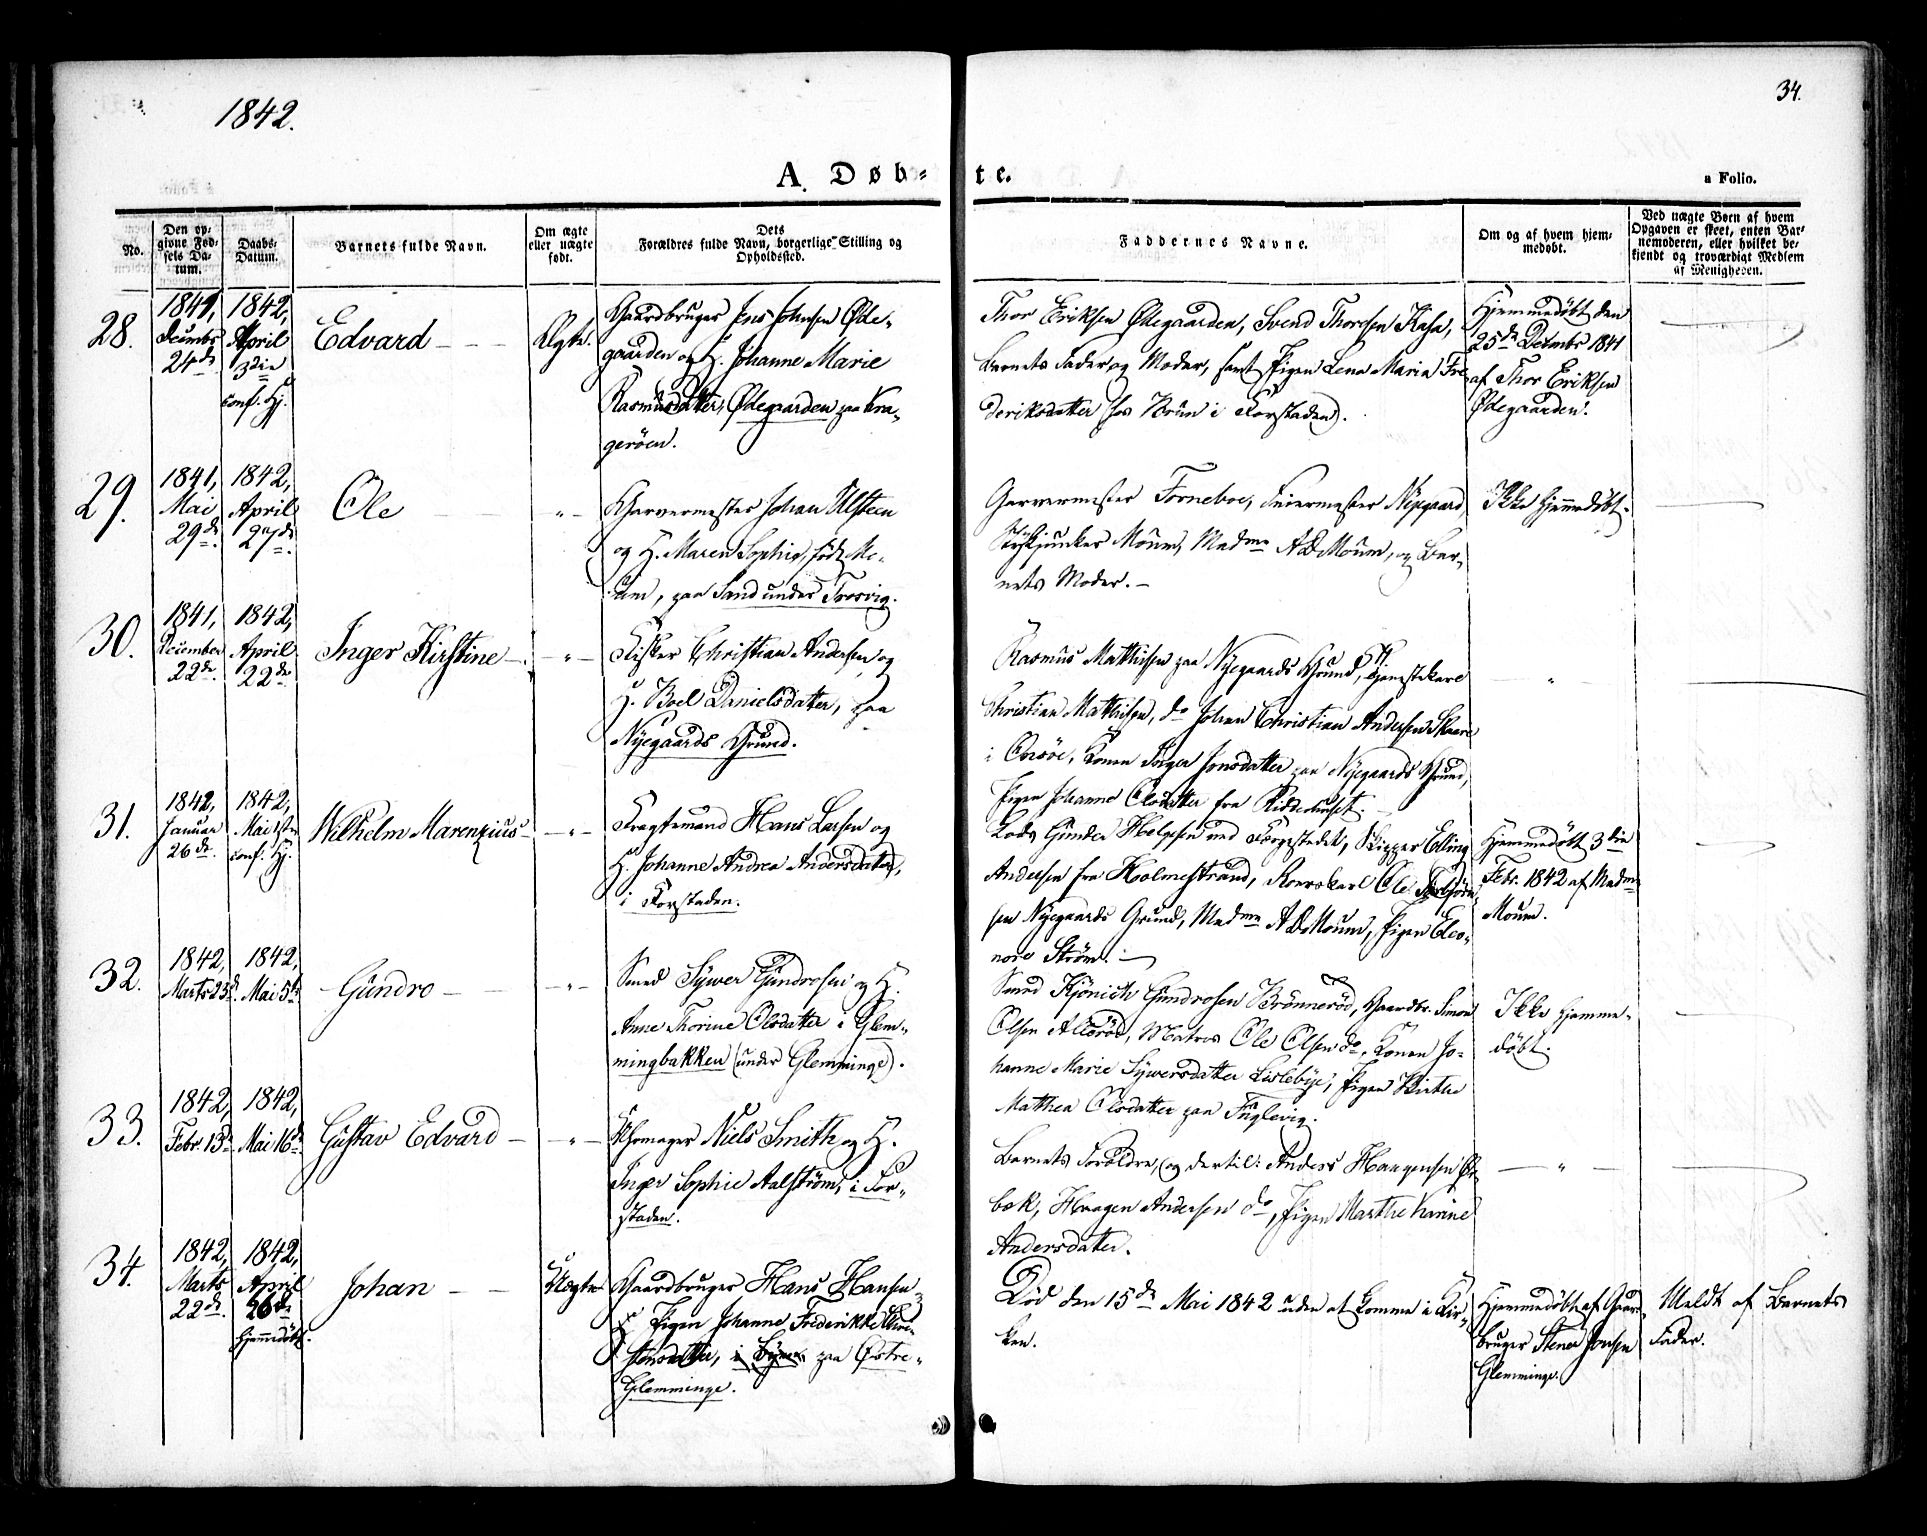 1842.
34.
A. Døb-
te.
a Folio.
No.
Den op-
givne Fød-
sels Da-
tum.
Daabs-
Datum.
Barnets fulde Navn.
Om ægte
eller uægte
født.
Dets
Forældres fulde Navn, borgerlige Stilling og
Opholdssted.
Faddernes Navne.
Om og af hvem hjem-
medøbt.
Ved uægte Børn af hvem
Opgaven er skeet, enten Bar-
nemoderen, eller hvilket be-
kjendt og troværdigt Medlem
af Menigheden.
28.
1841,
Decembr
24de
1842,
April
3die
conf. Hj.
Edvard
Ægte.
Gaardbruger Jens Johnsen Øde-
gaarden og H. Johanne Marie
Rasmusdatter, Ødegaarden paa Kra-
gerøen.
Thor Eriksen Ødegaarden, Svend Thoresen Kasa,
Barnets Fader og Moder, samt Pigen Lena Maria Fre-
deriksdatter (hos Brün i Forstaden).
Hjemmedöbt den
25de Decembr 1841
af Thor Eriksen
Ødegaarden.
29.
1841,
Mai
29de
1842,
April
27de
Ole
- " -
Garvermester Johan Ulsteen
og H. Maren Sophie, født Mo-
um, paa Sand under Trosvig.
Garvermester Forneboe, Feiermester Nygaard,
Moum, Madme A D Moum, og Bar-
nets Moder. -
Ikke Hjemmedöbt.
30.
1841,
December
22de
1842,
April
22de
Inger Kirstine
- " -
Fisker Christian Andersen og
H. Boel Danielsdatter, paa
Nyegaards Grund.
Rasmus Mathisen paa Nyegaards Grund,
Christian Mathisen, do Johan Christian Andersen Skaare
i Onsöe, Konen Inger Jonsdatter paa Nyegaards Grund,
Pigen Johanne Olsdatter fra Ridderhuset.
"
31.
1842,
Januar
26de
1842,
Mai 1ste
conf. Hj.
Wilhelm Marenzius
- " -
Fragtemand Hans Larsen og
H. Johanne Andrea Andersdatter,
i Forstaden.
Lods Gunder Helgesen ved Færgestedet, Skipper Elling
Andersen fra Holmestrand, Ole Torbjörn-
sen Nyegaards Grund, Madme A D Moum, Pigen Eleo-
nore Ström. -
Hjemmedöbt 3die
Febr. 1842 af Madme
Moum.
32.
1842,
Marts 23de
1842,
Mai 5te
Gundro
- " -
Smed Sywer Gundrosen og H.
Anne Thorine Olsdatter i Glem-
mingbakken (under Glemminge).
Smed Gundrosen Brönneröd, Gaardbr. Simon
Olsen Alleröd, Matros Ole Olsen do, Konen Jo-
hanne Marie Sywersdatter Lislebye, Pigen Birthe
Mathea Olsdatter paa Fuglevig.
Ikke Hjemme-
döbt.
33.
1842,
Febr. 13de
1842,
Mai 16de
Gustav Edvard
- " -
Skomager Niels Smith og H.
Inger Sophie Aalström, i For-
staden.
Barnets Forældre, og dertil: Anders Haagensen Ör-
bæk, Haagen Andersen do, Pigen Marthe Karine
Andersdatter.
"
34.
1842,
Marts
22de
1842,
April
26de
Hjemmedöbt.
Johan
Uægte
Gaardbruger Hans Hansen
& Pigen Johanne Frederikke
paa Østre-
Glemminge.
Död den 15de Mai 1842 uden at komme i Kir-
ken.
Hjemmedöbt af Gaard-
bruger Stener Jonsen
Glemminge.
Meldt af Barnets
Fader.